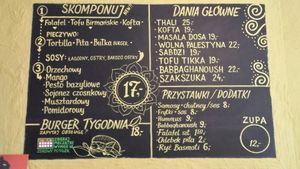 ① SKOMPONUJ
Falafel · Tofu Birmańskie · Kofta
② PIECZYWO:
Tortilla · Pita · Bułka
SOSY: ŁAGODNY, OSTRY, BARDZO OSTRY
③ Orzechowy
Mango
Pesto bazyliowe
Sojonez czosnkowy
Musztardowy
Pomidorowy
17.-
BURGER TYGODNIA
ZAPYTAJ OBSŁUGĘ
18.-
DANIA GŁÓWNE
THALI 25.-
KOFTA 19.-
MASALA DOSA 19.-
WOLNA PALESTYNA 22.-
SABDZI 19.-
TOFU TIKKA 19.-
BABBAGHANOUSH 22.-
SZAKSZUKA 24.-
PRZYSTAWKI / DODATKI
Samosy + chutney / sos 8.-
Frytki + sos 8.-
Hummus 9.-
Babbaghanoush 9.-
Falafel szt 110.-
Chlebek pita 2.-
Ryż Basmati 6.-
ZUPA
12.-